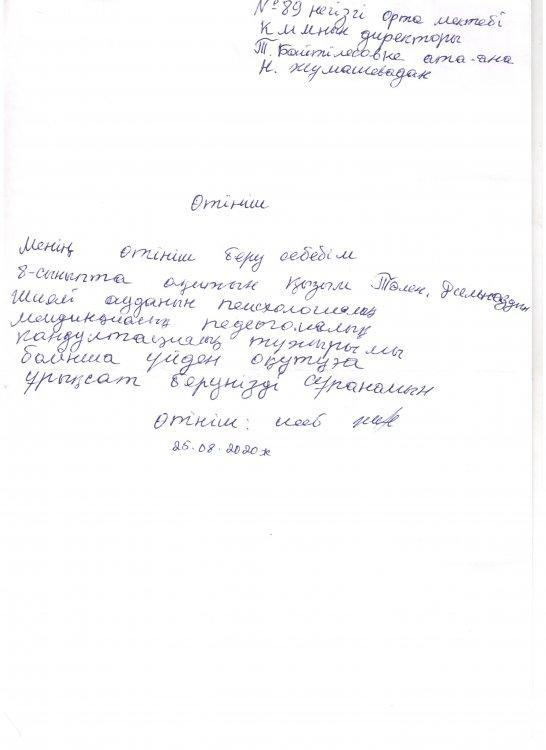 №89 негізгі орта мектебі
КММнын директоры
Т. Байтілесовке ата-ана
Н. Жумашевадан
Өтініш
Менің өтініш беру себебім
8-сыныпта оқитын қызым Төлек
Шиелі ауданын психологиялық
педагогмалық
тұжырымы
бойнша үйден оқутуға
ұрықсат беруңізді сұранамын
Өтініш:
26.08.2020ж